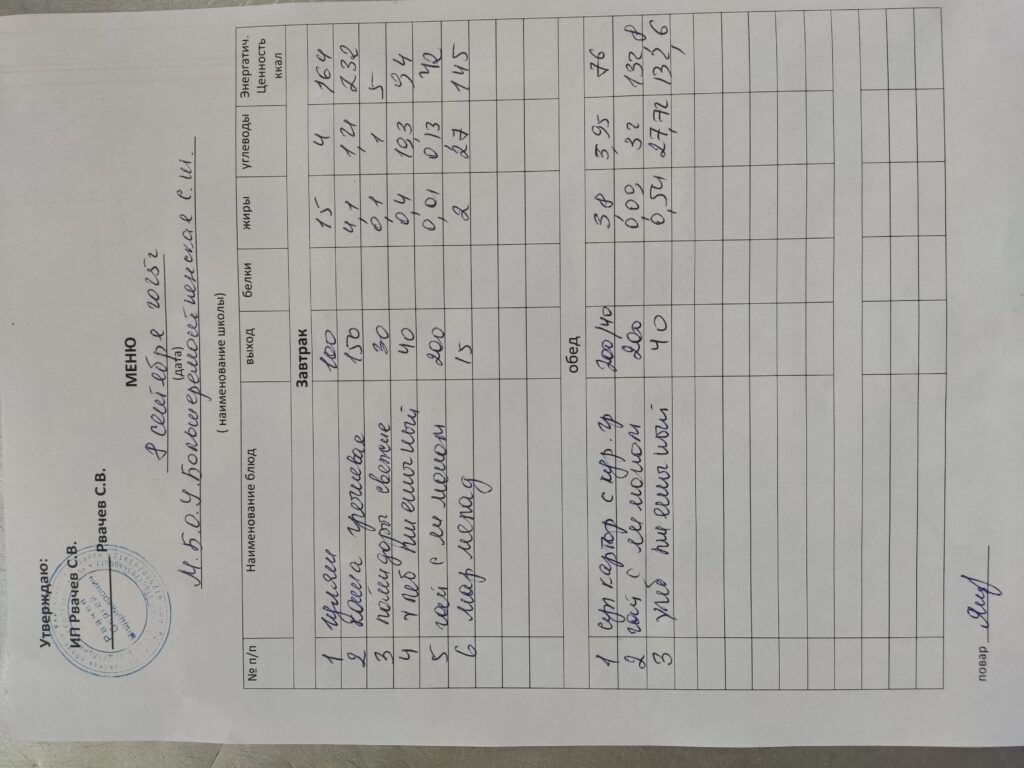 Утверждаю:
ИП Рвачев С.В.
Рвачев С.В.
МЕНЮ
8 сентября 2025г
(дата)
М.Б.О.У. Большеремонтненская С.Ш.
( наименование школы)
№ п/п Наименование блюд выход белки жиры углеводы Энергатич. Ценность ккал
Завтрак
1 гуляш 100 15 4 164
2 каша гречневая 150 4,1 1,21 232
3 помидоры свежие 30 0,1 1 5
4 хлеб пшеничный 40 0,4 19,3 94
5 чай с лимоном 200 0,01 0,13 42
6 мармелад 15 2 27 145
обед
1 суп картоф с кур. гр 200/40 38 3,95 76
2 чай с лимоном 200 0,09 32 132,8
3 хлеб пшеничный 40 0,54 27,72 132,6
повар